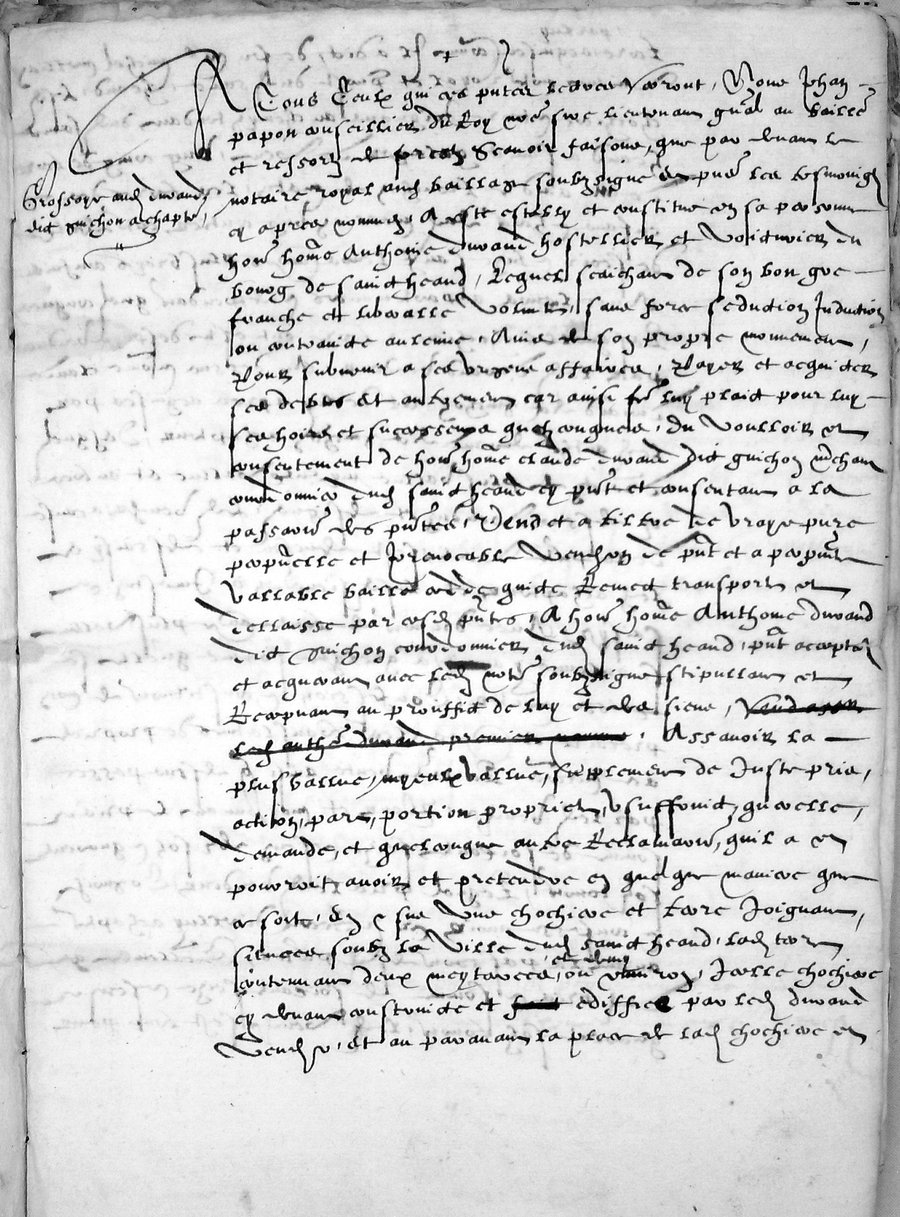 A Tous Ceulx qui ces pntes lectres verront, Nous Jehan
papon conseillier du Roy nre sire lieutenant gnal au bailliage
et ressort de forestz Scavoir faisons, que par devant le
Grossoye aud durand
dict guichon achapteur
notaire royal aud bailliage soubzsigne en pnce les tesmoingz
cy apres nommez A este estably et constitue en sa personne
honn homme Anthoine durand hostellier et voicturier du
bourg de sainct heand, Lequel saichant de son bon gre
franche et liberalle volunte, sans force seduction Induction
ou contraincte aulcune, Ains de son propre mouvement,
Pour subvenir a ses urgens affaires, Payer et acquicter
ses debtes Et aultrement car ainsi luy plaict pour luy
ses hoirs et successeurs quelzconques, Du voulloir et
consentement de honn homme claude durand dict guichon mchant
cordonnier dud sainct heand cy pnt et consentant a la
passation des pntes, Vend et a tiltre de vraye pure
perpetuelle et Irrevocable vendition de pnt et a perpetuite
vallable baille cedde quicte Remect transporte et
dellaisse par cesd pntes, A honn homme Anthoine durand
dict guichon cordonnier dud sainct heand, pnt acceptant
et acquerant avec led notre soubzsigne stipullant et
Recepvant au prouffict de luy et des siens,
Assavoir la
plus vallue, myeulx vallue, supplement de Juste pris,
action, part, portion propriete, usuffruict, querelle,
demande, et quelconque aultre Reclamation, quil a et
pourroit avoir et pretendre en quelque maniere que
ce soit, En & sus Une chochiere et terre Joignant,
scituees soubz la Ville dud sainct heand, lad terre
et demy
contenant deux meyterees, ou environ, Icelle chochiere
cy devant construicte et ediffiee par led durand
vendr, Et au paravant la place de lad chochiere et